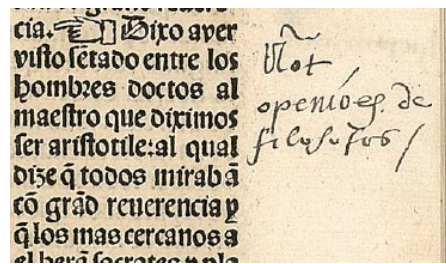 cia. ☜ Dixo aver
visto sētado entre los
hombres doctos al
maestro que diximos
ser aristotile: al qual
dize q̄ todos mirabā
cō grād reuerencia y
q̄ los mas cercanos a
Not
openiōes. de
filosofos /